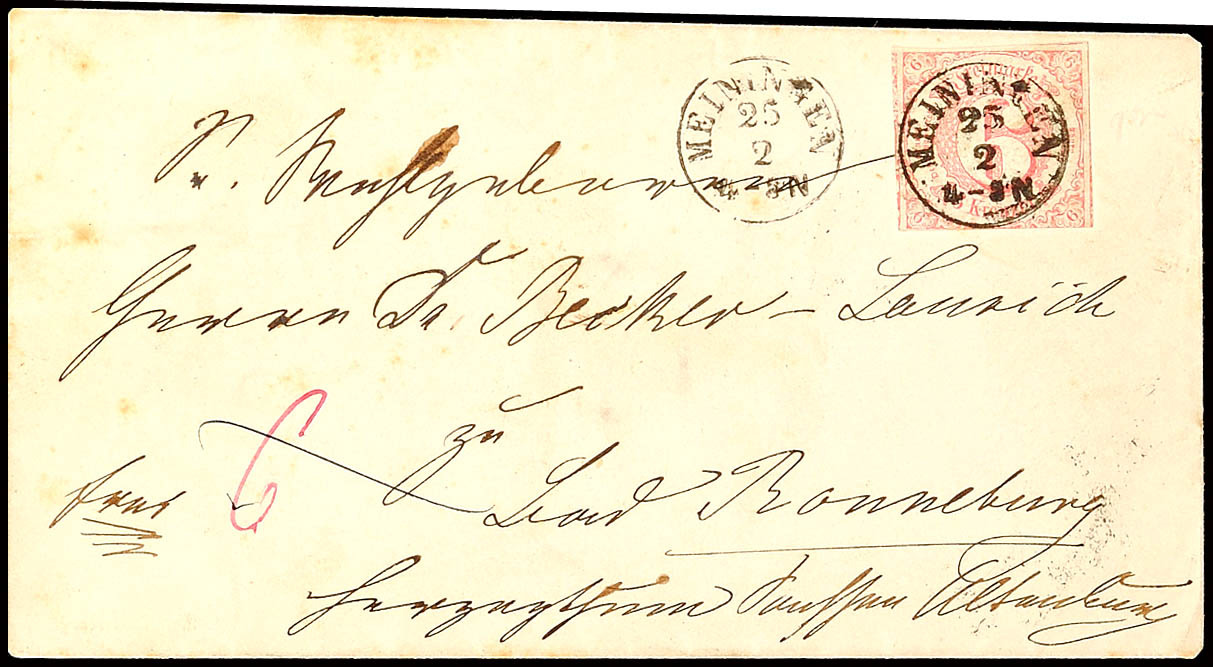 MEININGEN
25
2
4-5N
MEININGEN
25
2
4-5N
6
6
6
Kreuzer
Sr. Hochgeboren
Herrn Dr. Becker-Laurich
zu
frei 6 Bad Ronneburg
Herzogthum Sachsen Altenburg